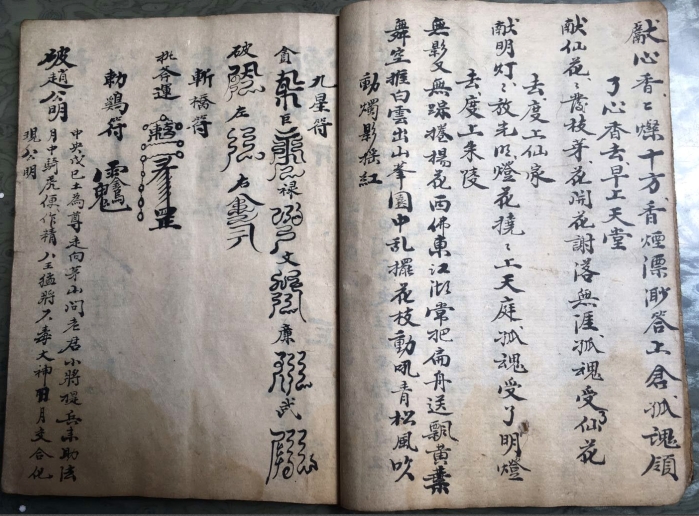 献心香香爍十方香煙漂渺答上倉孤魂領
了心香去早上天堂
献仙花花發枝芽花開花謝落無涯孤魂受了仙花
去度上仙家
献明灯灯放光明燈花撓撓上天庭孤魂受了明燈
去度上朱陵
無影又無踪攪楊花西佛東江湖常把扁舟送飄黃葉
舞空推白雲出山峯園中乱擺花枝動吼青松風吹
動燭影摇紅
九星符
貪 巨 禄 文 廉 武
破 左 右
斬橋符
批命運
勅鷄符
破趙公明
中央戊巳土為尊走向茅山问老君小將提兵來助法
月中騎虎便作精八王猛將不毒大神月交合化
現公明